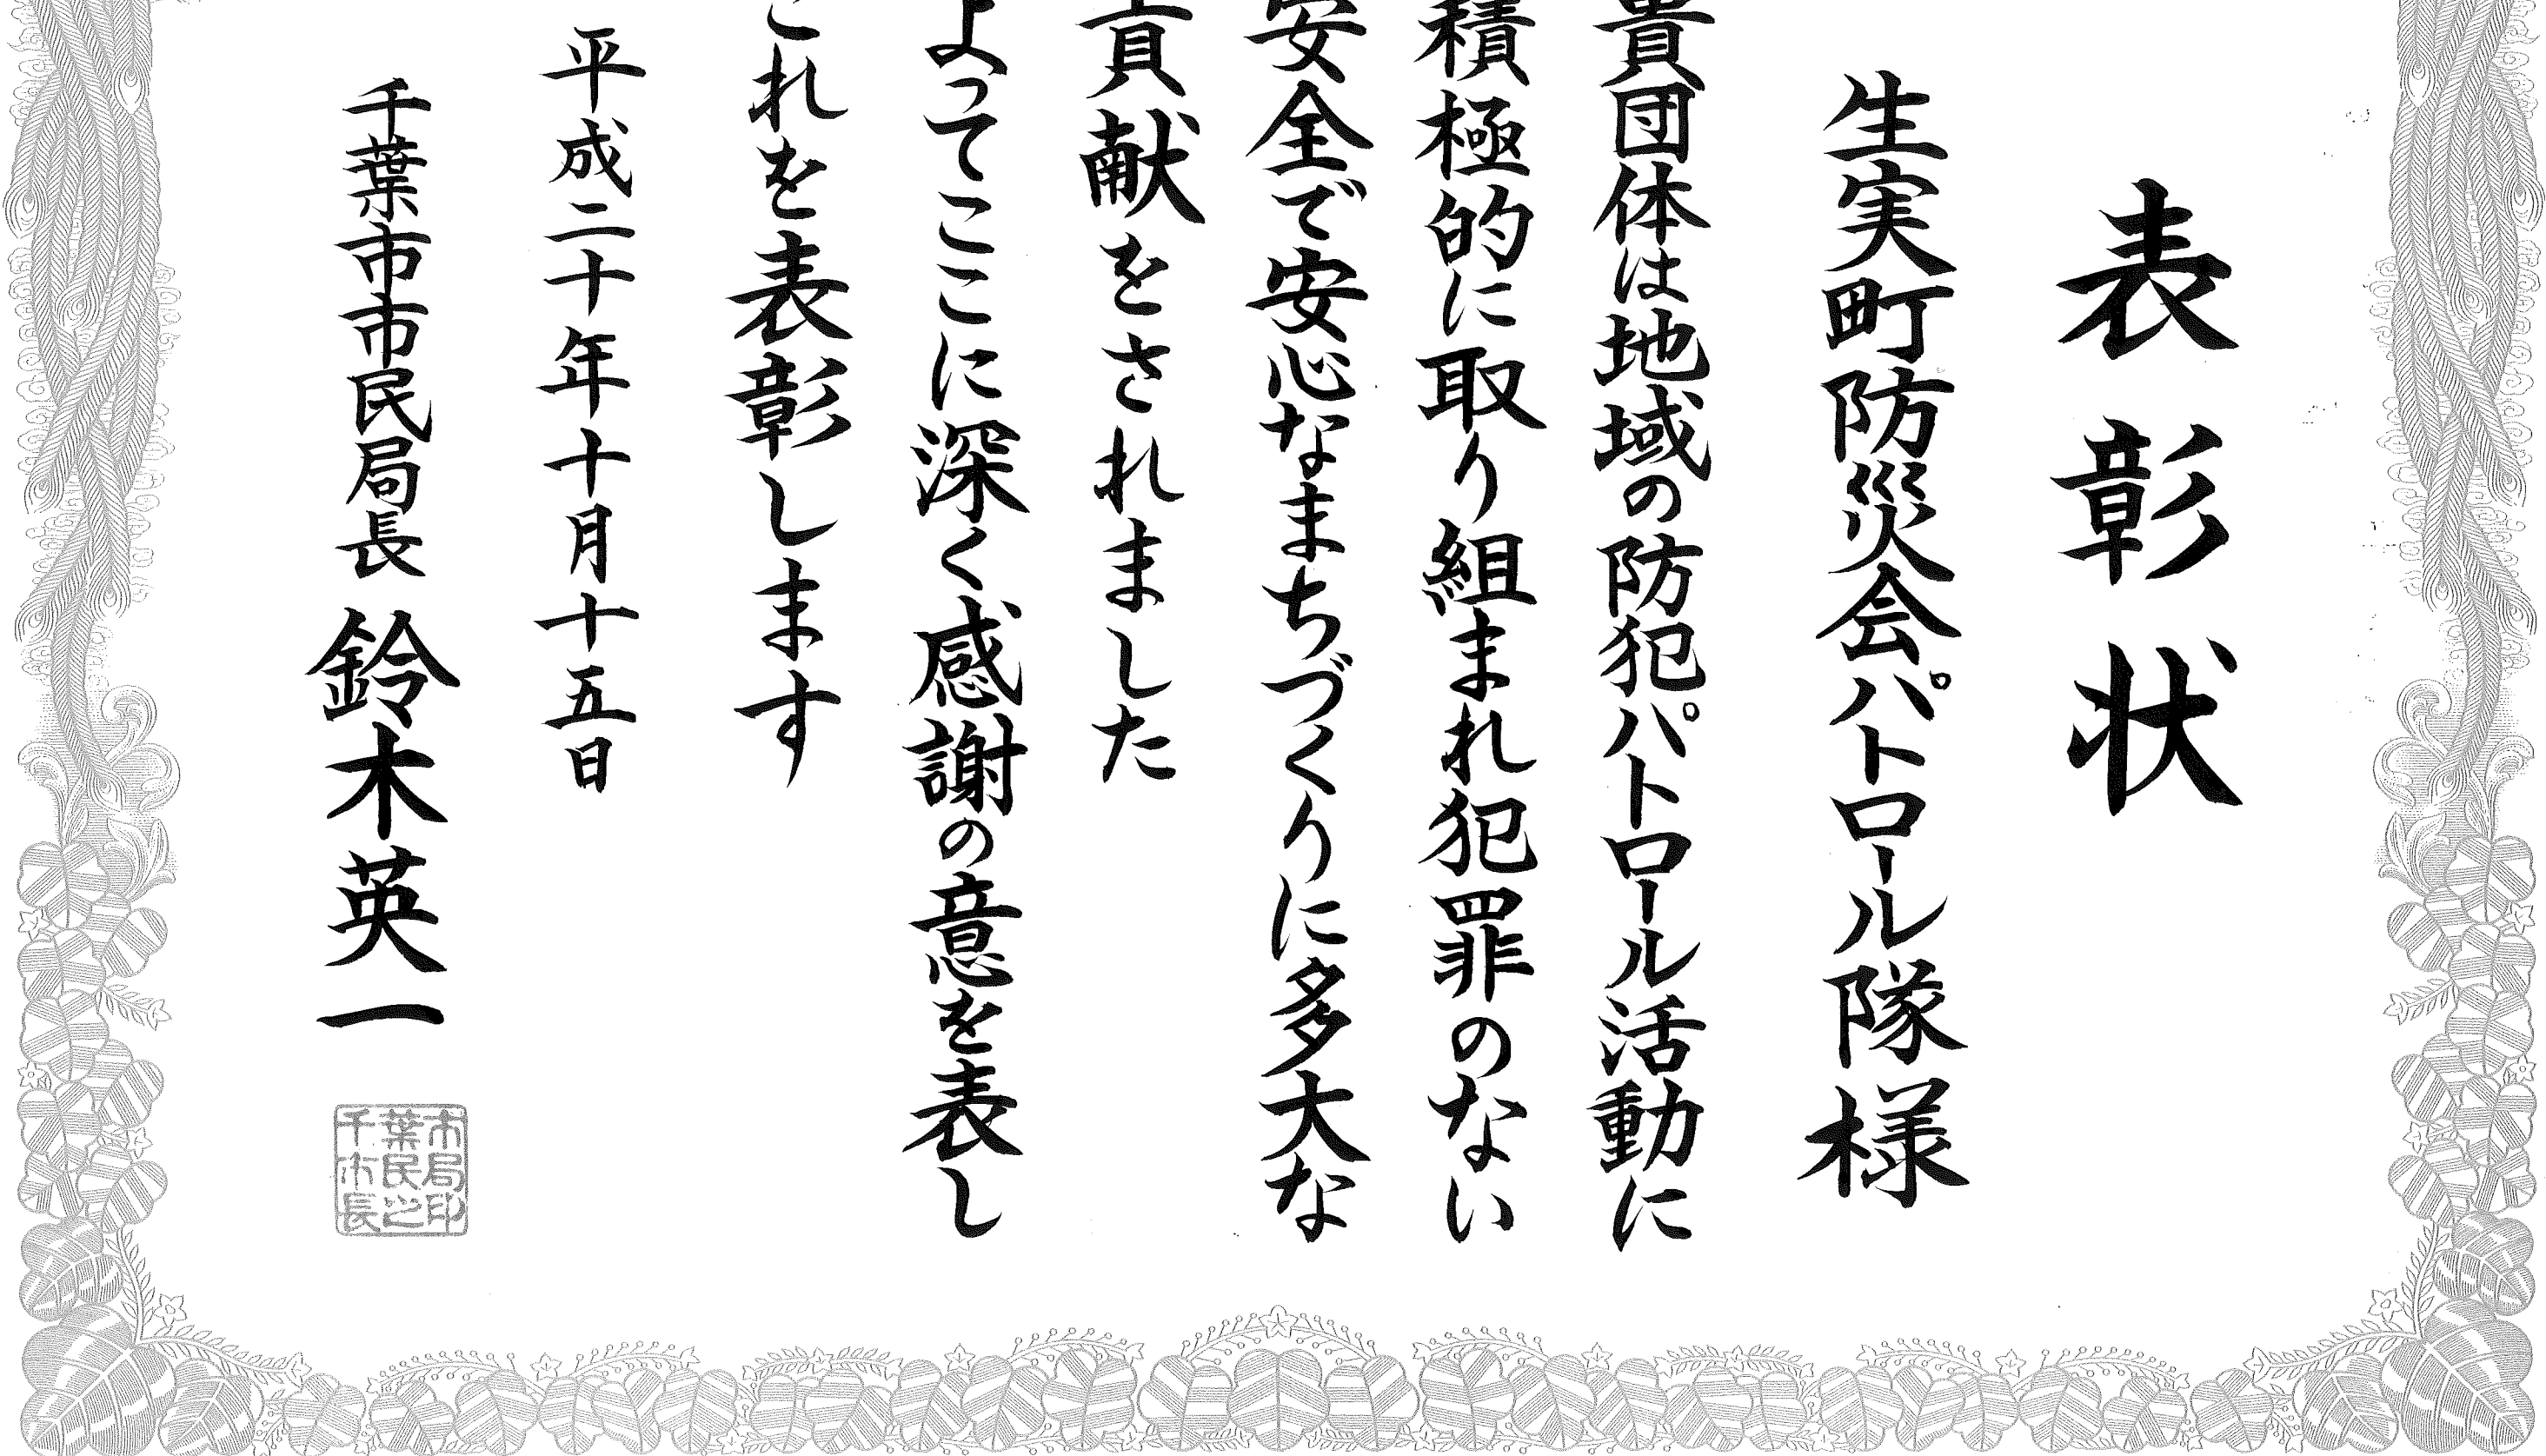 表彰状
生実町防災会パトロール隊様
貴団体は地域の防犯パトロール活動に
積極的に取り組まれ犯罪のない
安全で安心なまちづくりに多大な
貢献をされました
よってここに深く感謝の意を表し
これを表彰します
平成二十年十月十五日
千葉市市民局長 鈴木英一
千葉市
市民局
長之印